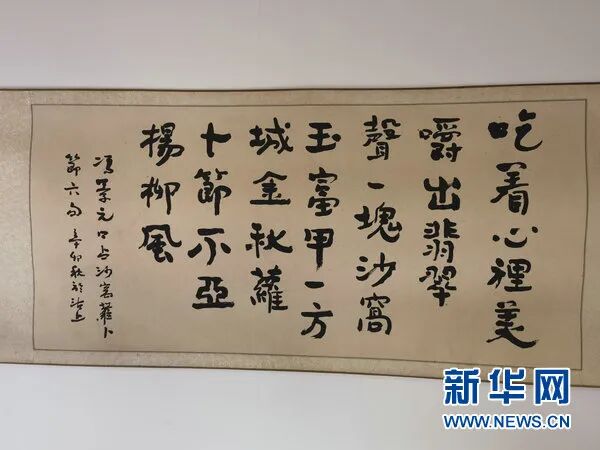 吃着心裡美
嚼出翡翠
聲一塊沙窩
玉富甲一方
城金秋蘿
卜節不亞
楊柳風
馮景元口占沙窩蘿卜
節六句 辛卯秋於沽上
新华网
WWW.NEWS.CN